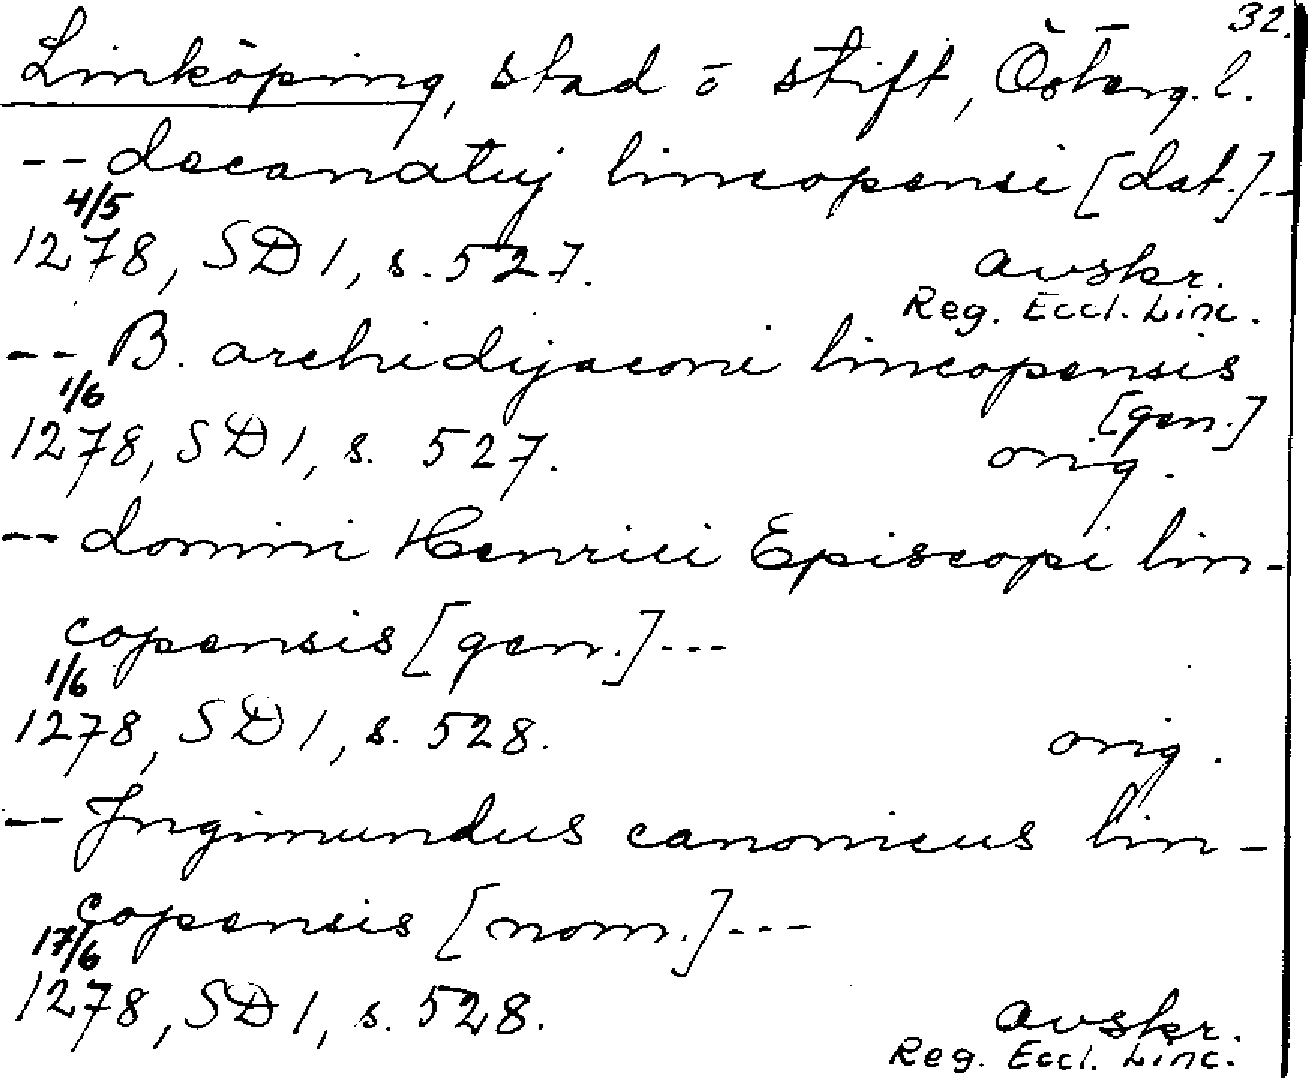 32.
Linköping, stad o stift, Österg. l.
-- decanatuj lincopensi [dat.]--
4/5
1278, SD 1, s. 527. avskr.
Reg. Eccl. Linc.
-- B. archidijaconi lincopensis
[gen.]
1/6
1278, SD 1, s. 527. orig.
-- domini Henrici Episcopi lin-
copensis [gen.] ---
1/6
1278, SD 1, s. 528. orig.
-- Jngimundus canonicus lin-
copensis [nom.] ---
17/6
1278, SD 1, s. 528. avskr.
Reg. Eccl. Linc.